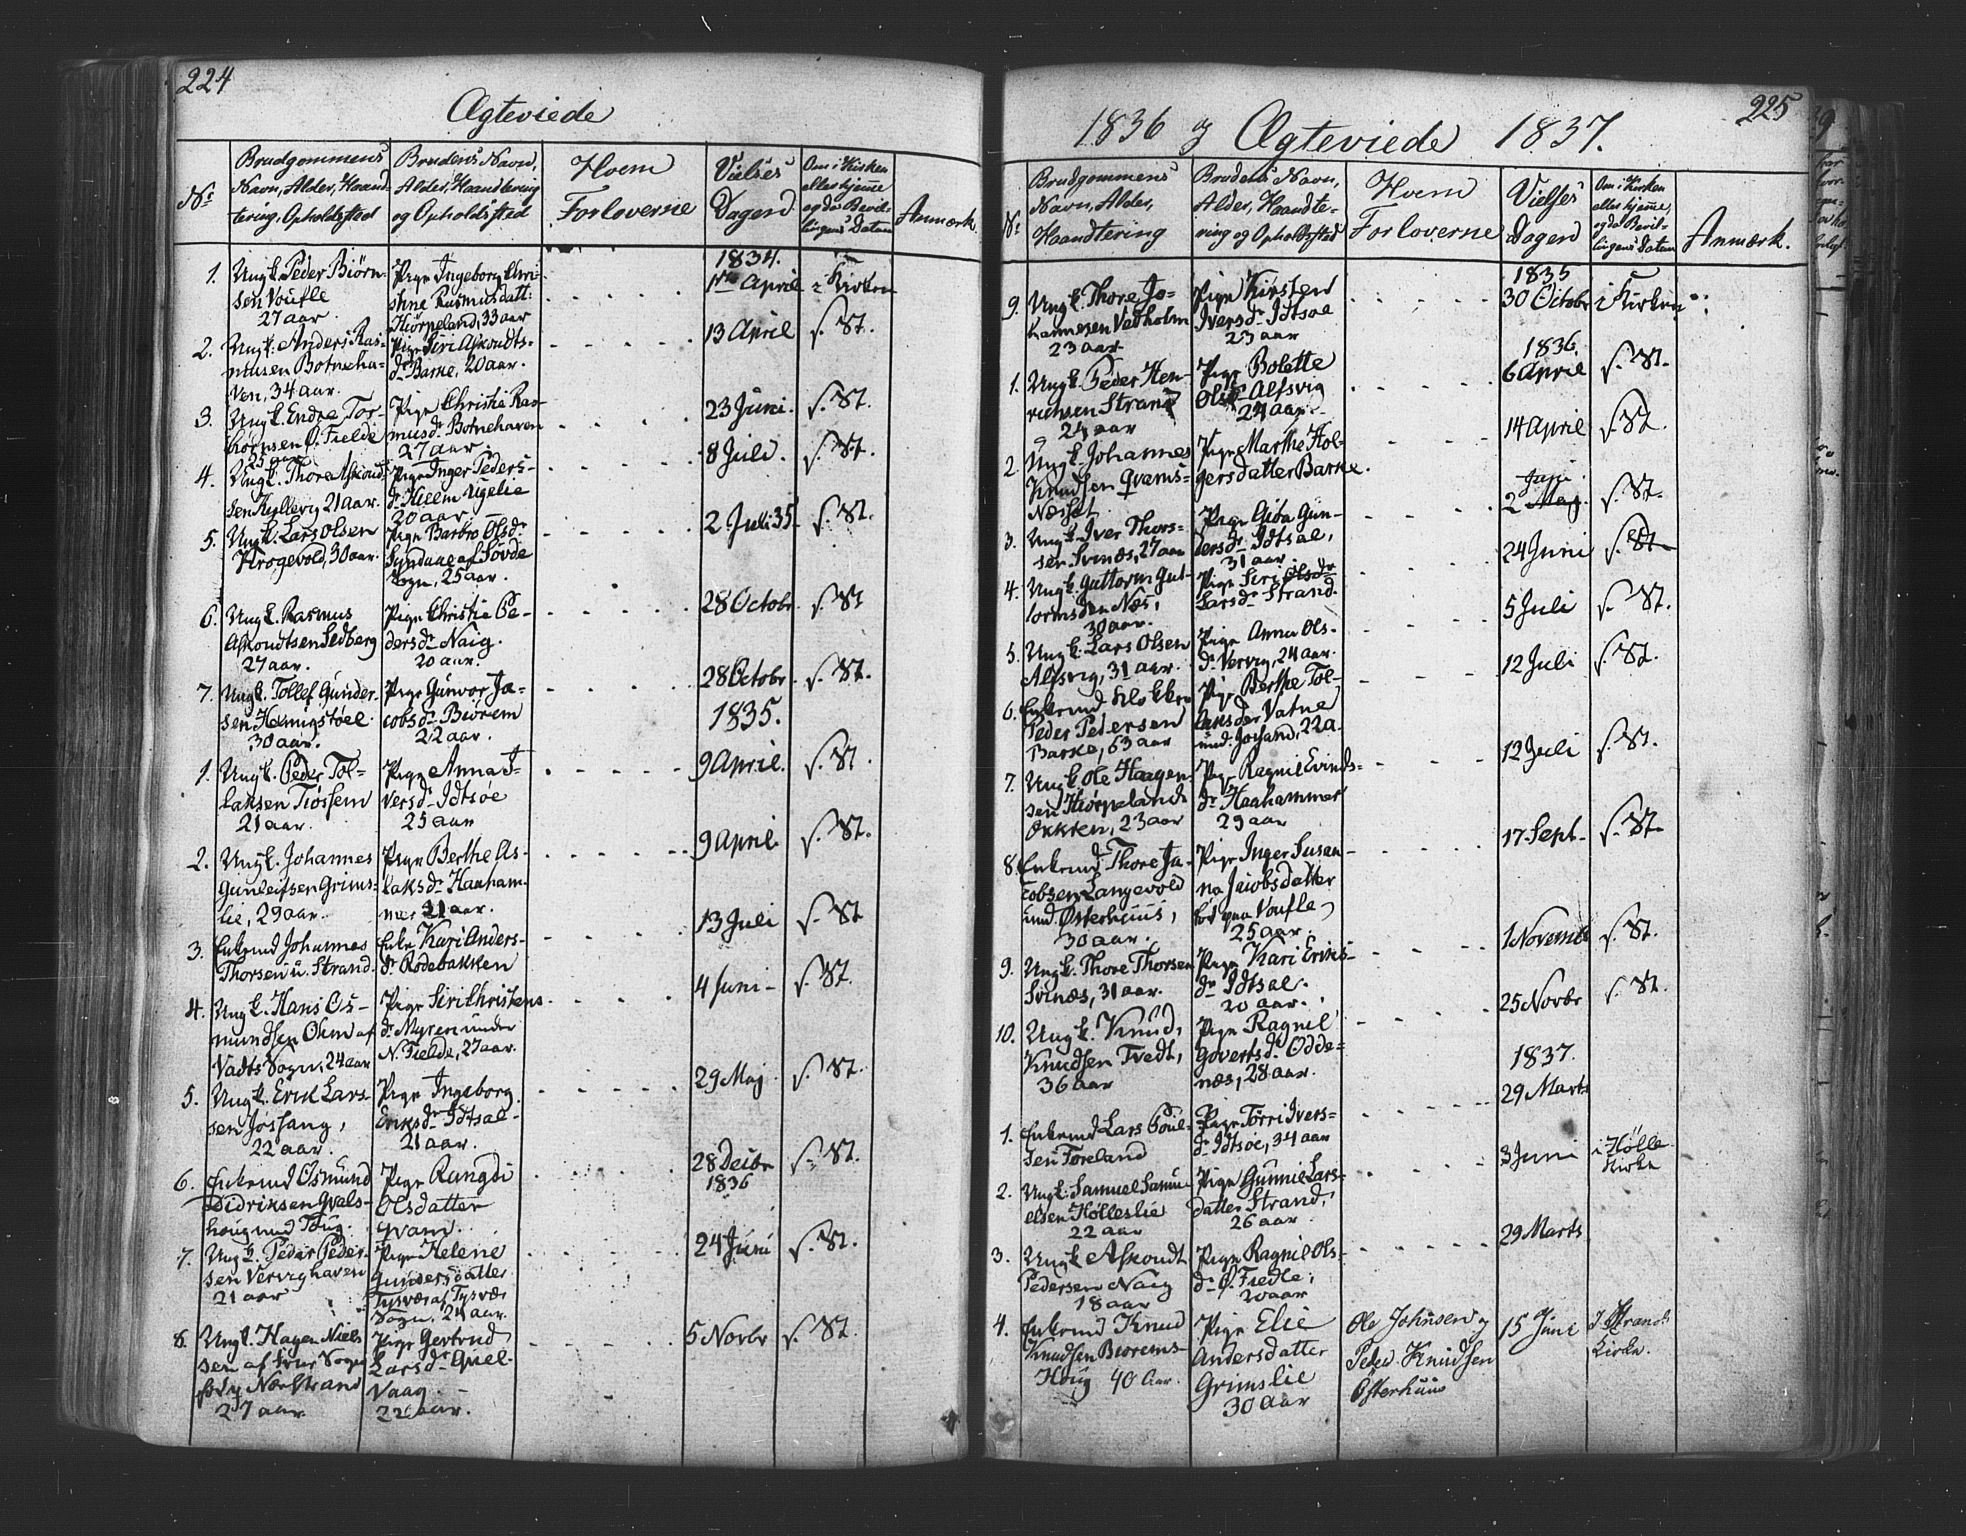 224
Ægteviede
No
Brudgommens
Navn, Alder, Haand-
tering, Opholdsted
Brudens Navn,
Alder, Haandtering
og Opholdsted
Hvem
Forloverne
Vielses
Dagen
Om i Kirken
eller hjemme
og da Bevil-
lingens Datum
Anmærk.
1834.
1. Ungk. Peder Biørn-
sen Voufle
27 aar
Pige Ingeborg Chri-
stine Rasmusdatt:
Hiørpeland, 33 aar
April
i Kirken
2. Ungk. Anders Ras-
musen Botneha-
ven, 34 aar.
Pige Siri Askoudts-
dr Barke, 20 aar.
13 April
s. St.
3. Ungk. Endre Tor-
biørnsen Ø. Fielde
25 aar
Pige Christie Ras-
musdr Botnehaven
27 aar
23 Juni.
s. St.
4. Ungk. Thore Askoud-
sen 21 aar.
Pige Inger Peders-
dr
20 aar
8 Juli.
s. St.
5. Ungk. Lars Olsen
Krogevold, 30 aar.
Pige Barbro Olsdr
af Søvde
Sogn, 25 aar.
2 Juli 35
s. St.
6. Ungk. Rasmus
Askoudtsen Sedberg
27 aar.
Pige Christie Pe-
dersdr Naig.
20 aar.
28 Octobr.
s. St
7. Ungk. Tollef Gunder-
sen
30 aar.
Pige Gunvor Ja-
cobsdr Biørem
22 aar.
28 Octobr.
s. St.
1835.
1. Ungk. Peder Tol-
laksen Tiøssem
21 aar.
Pige Anna I-
versdr Idtsøe
25 aar
9 April.
s. St.
2. Ungk. Johannes
Gunleifsen Grims-
lie, 29 aar.
Pige Berthe As-
laksdr Haaham-
mer 21 aar.
9 April
s. St.
3. Enkemd Johannes
Thorsen u. Strand.
Enke Kari Anders-
dr Rødebakken
13 Juli
s. St
4. Ungk. Hans Os-
mundsen Ohm af
Vadts Sogn, 24 aar
Pige Siri Christens
dr Myren under
N. Fielde, 27 aar.
4 Juni
s. St.
5. Ungk. Erik Lars-
sen Jøssang,
22 aar.
Pige Ingeborg
Eriksdr Idtsøe
21 aar.
29 Maj
s. St.
6. Enkemd Osmund
Didriksen Qvals-
houg und Toug.
Pige Rangdi
Olsdatter
Qvam.
28 Decbr
s. St.
1836
7. Ungk. Peder Peder-
sen Vervighaven
21 aar
Pige Helene
Gundersdatter
Tysvær af Tysvær
Sogn. 24 aar.
24 Juni
s. St.
8. Ungk. Hagen Niels
sen af Sogn
Nærstrand
27 aar
Pige Gertrud
Larsdr Quel-
Vaag.
22 aar.
5 Novbr
s. St.
225
1836 og Ægteviede 1837.
No
Brudgommens
Navn, Alder,
Haandtering
Brudens Navn,
Alder, Haandte-
ring og Opholdsted
Hvem
Forloverne
Vielses
Dagen
Om i Kirken
eller hjemme,
og da Bevil-
lingens Datum
Anmærk.
1835
9. Ungk. Thore Jo-
hannesen Vadholm
23 aar
Pige Kirsten
Iversdr Idtsøe
23 aar
30 Octobr
i Kirken
1836.
1. Ungk. Peder Hen-
richsen Strand
24 aar
Pige Bolette
Olsdr Alfsvig
24 aar
6 April
s. St.
2. Ungk. Johannes
Knudsen Qværns-
Næsset
Pige Marthe Hol-
gersdatter Barke.
14 April
s. St.
3. Ungk. Iver Thors-
sen Svinæs, 27 aar
Pige Giøa Gun-
dersdr Idtsøe,
31 aar.
Juni
2 Maj.
s. St.
4. Ungk. Guttorm Gut-
tormsen Næs,
30 aar.
Pige Siri Olsdr
Larsdr Strand.
24 Juni
s. St
5. Ungk. Lars Olsen
Alfsvig, 31 aar.
Pige Anna Ols-
dr Vervig, 24 aar.
5 Juli
s. St.
6. Enkemd Klokker
Peder Pedersen
Barke, 63 aar
Pige Berthe Tol-
laksdr Vatne
und. Jøssand, 22 a.
12 Juli
s. St.
7. Ungk. Ole Haagen-
sen Hiørpelands
Økken, 23 aar
Pige Ragnil Evinds-
dr Haahammer
29 aar
12 Juli
s. St.
8. Enkemd Thore Ja-
cobsen Langevold
und. Østerhuus,
30 aar.
Pige Inger Susan-
na Jacobsdatter
fød paa Voufle
25 aar
17 Sept.
s. St.
9. Ungk. Thore Thorsen
Svinæs, 31 aar.
Pige Kari Eriks-
dr Idtsøe.
20 aar.
1 Novembr
s. St.
10. Ungk. Knud
Knudsen Tvedt,
36 aar
Pige Ragnil
Govertsdr Odde-
næs, 28 aar.
25 Novbr
s. St.
1837.
1. Enkemd Lars Poul-
sen Foreland
Pige Torri Ivers-
dr Idtsøe, 34 aar
29 Marts
2. Ungk. Samuel Samu-
elsen Hølleslie
22 aar
Pige Gunnie Lars-
datter Strand,
26 aar
3 Juni
i Hølle
Kirke
3. Ungk Askoudt
Pedersen Naig
18 aar
Pige Ragnil Ols-
dr Ø. Fiedle,
20 aar
29 Marts
4. Enkemd Knud
Knudsen Biorems-
Houg 40 Aar.
Pige Elie
Andersdatter
Grimslie
30 Aar
Ole Johnsen og
Peder Knudsen
Østerhuus
15 Juni
I Strands
Kirke.